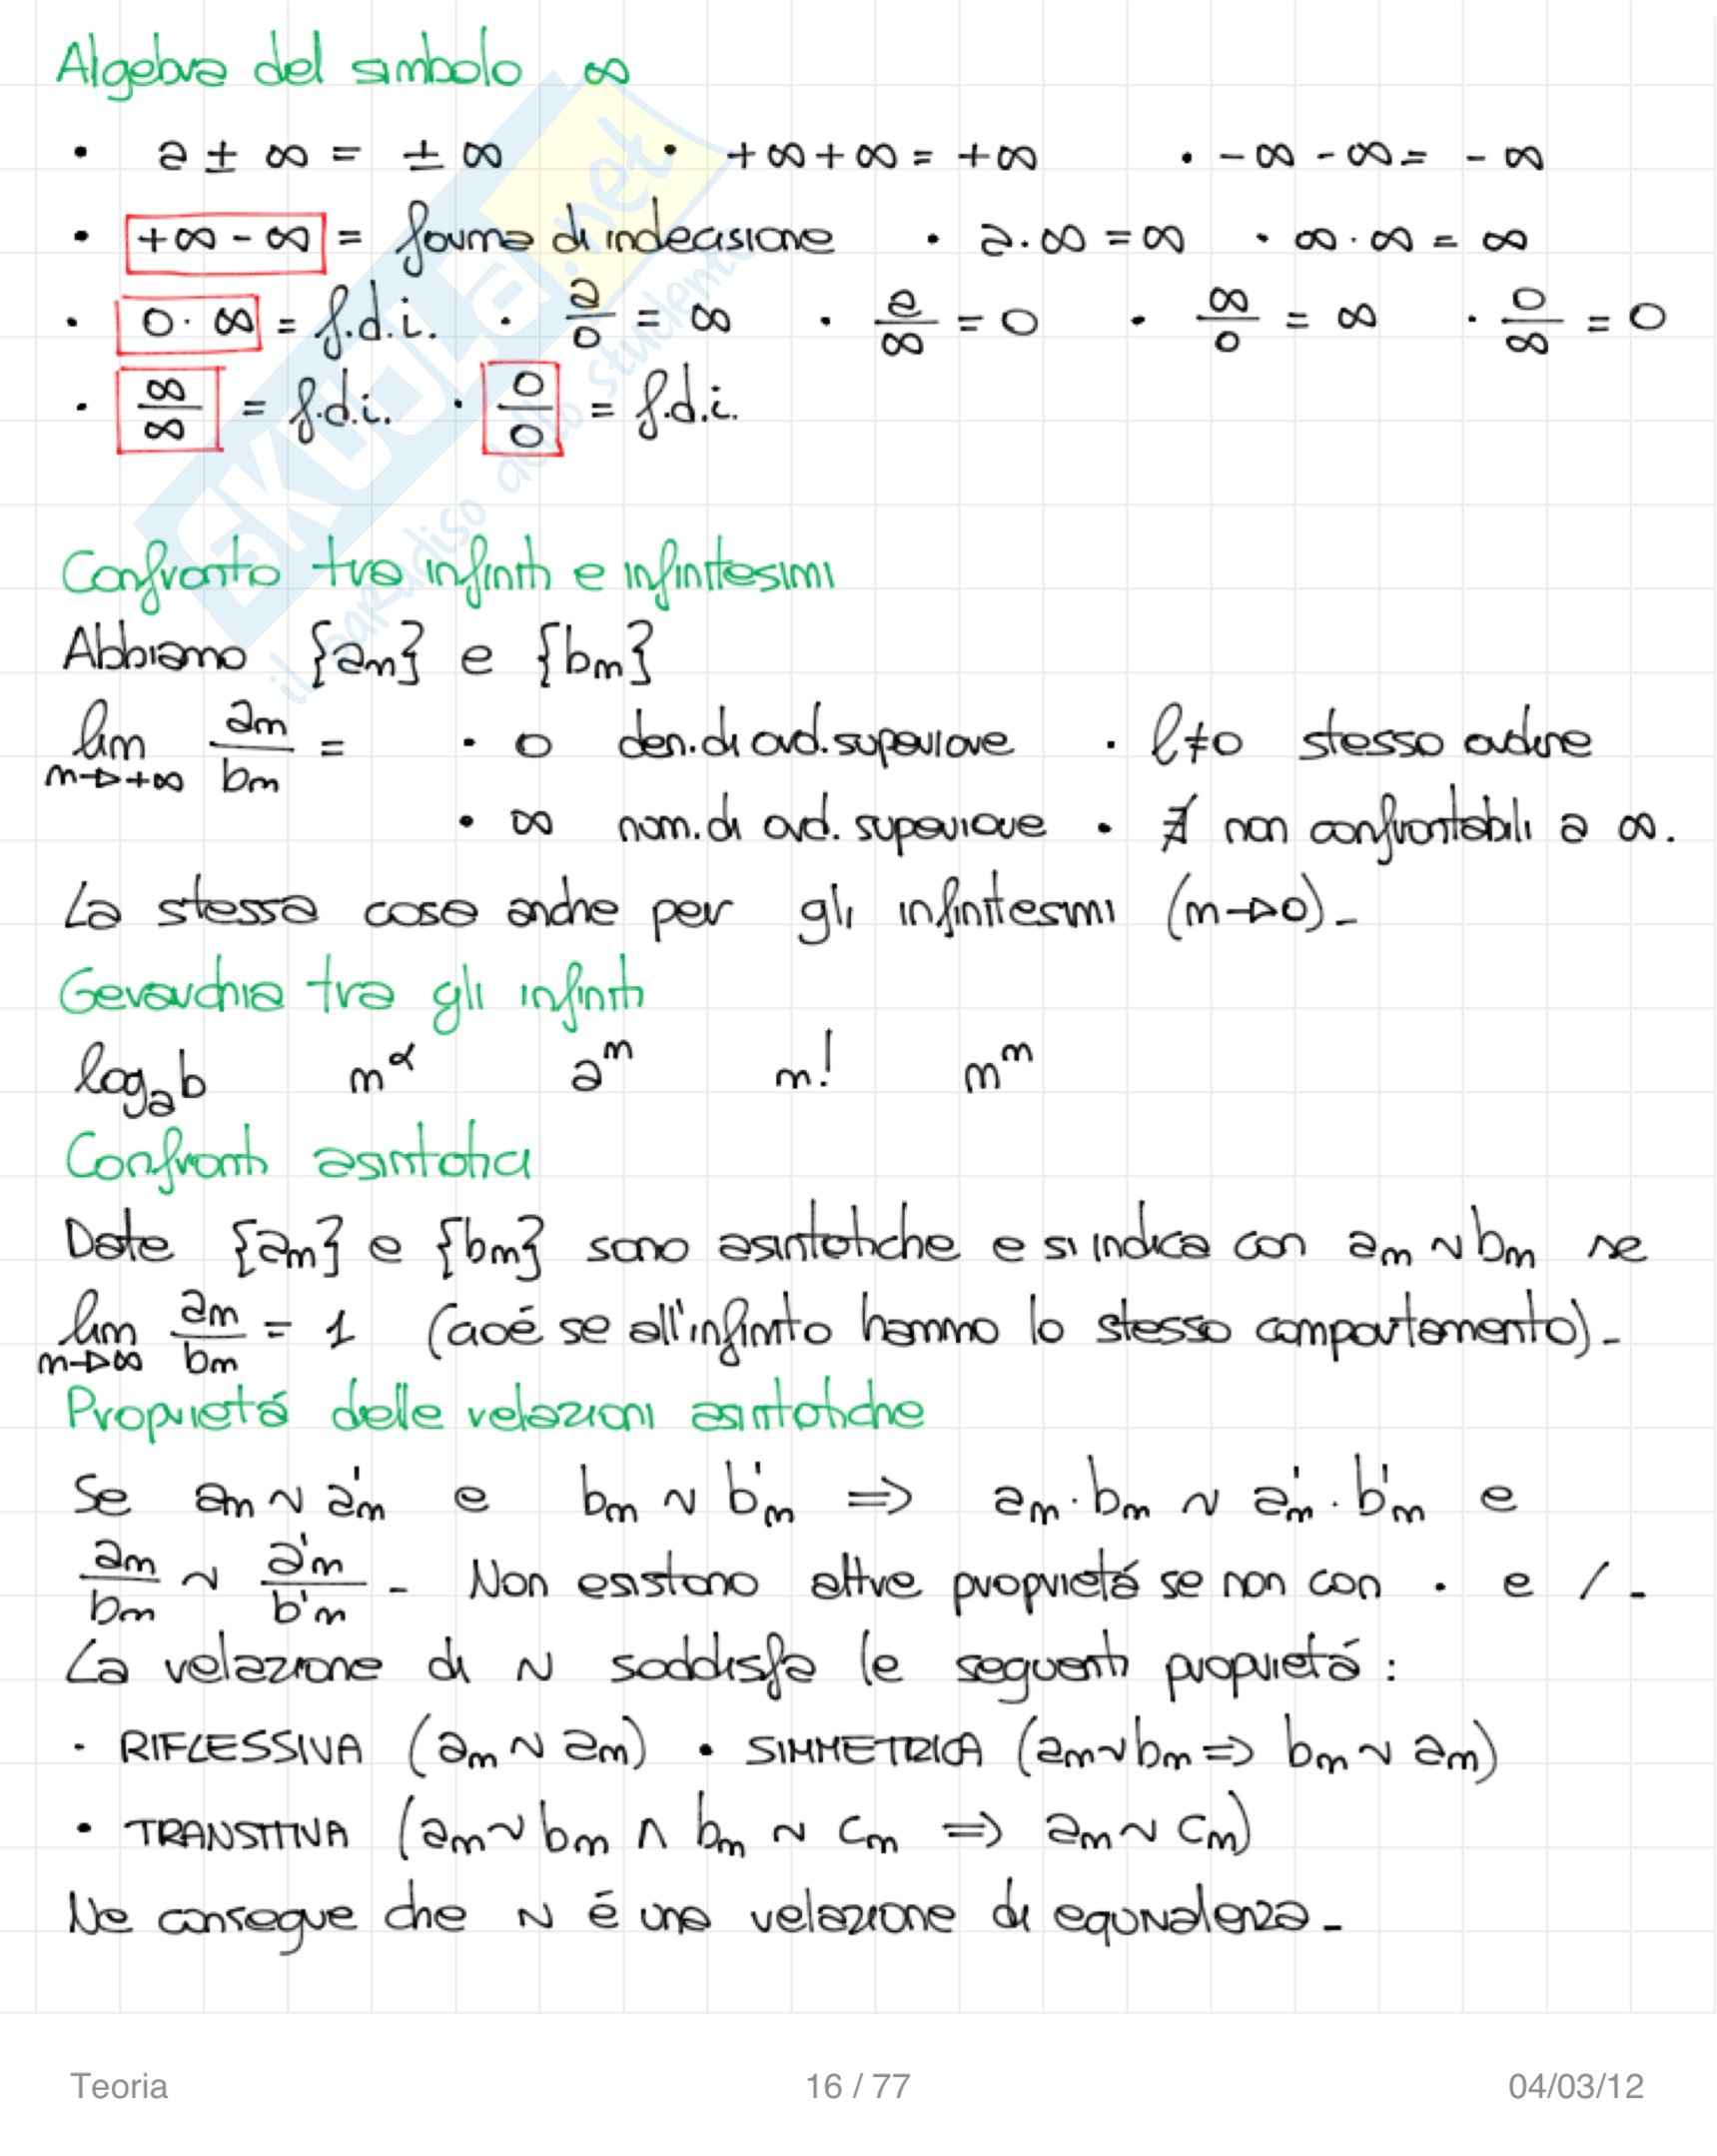 Algebra del simbolo ∞
• a ± ∞ = ± ∞ • +∞+∞ = +∞ • -∞ -∞ = -∞
• +∞ - ∞ = forma di indecisione • a·∞ = ∞ • ∞·∞ = ∞
• 0·∞ = f.d.i. • a/0 = ∞ • a/∞ = 0 • ∞/0 = ∞ • 0/∞ = 0
• ∞/∞ = f.d.i. • 0/0 = f.d.i.
Confronto tra infiniti e infinitesimi
Abbiamo {an} e {bn}
lim n→+∞ an/bn = • 0 den. di ord. superiore • l≠0 stesso ordine
• ∞ nom. di ord. superiore • ∄ non confrontabili a ∞.
La stessa cosa anche per gli infinitesimi (n→0)-
Gerarchia tra gli infiniti
log_a b n^α a^n n! n^n
Confronti asintotici
Date {an} e {bn} sono asintotiche e si indica con an ~ bn se
lim n→∞ an/bn = 1 (cioé se all'infinito hanno lo stesso comportamento)-
Proprietá delle relazioni asintotiche
Se an ~ a'n e bn ~ b'n => an·bn ~ a'n·b'n e
an/bn ~ a'n/b'n - Non esistono altre proprietá se non con · e / -
La relazione di ~ soddisfa le seguenti proprietá:
• RIFLESSIVA (an ~ an) • SIMMETRICA (an~bn => bn ~ an)
• TRANSITIVA (an~bn ∧ bn ~ cn => an ~ cn)
Ne consegue che ~ é una relazione di equivalenza-
Teoria 16 / 77 04/03/12
SKUOLA.net
il paradiso dello studente